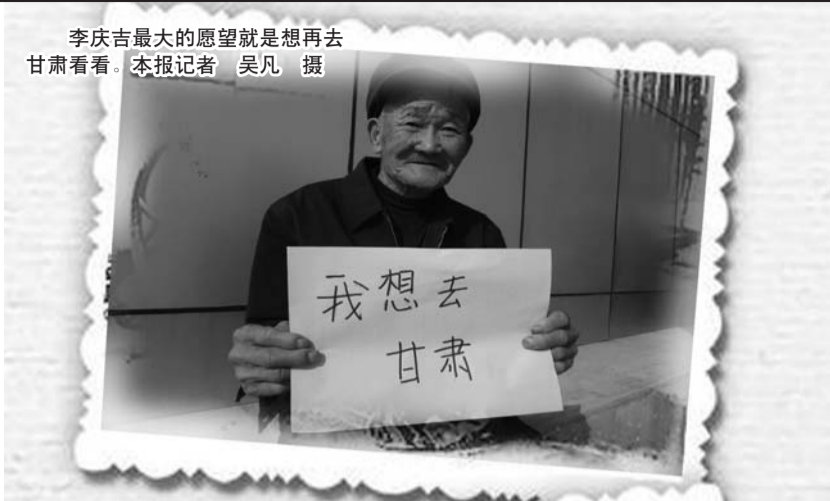 李庆吉最大的愿望就是想再去
甘肃看看。本报记者　吴凡　摄
我想去
甘肃